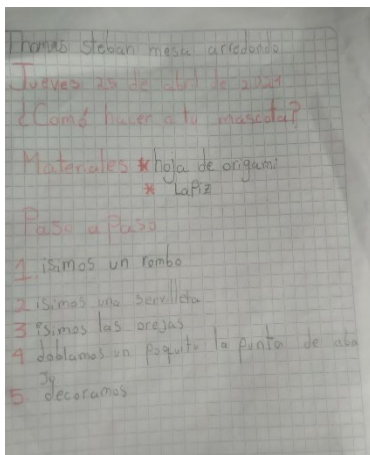 Thomas steban mesa arredondo
Jueves 25 de abril de
¿Comó hacer a tu mascota?
Materiales * hoja de origami
* Lapiz
Paso a Paso
1 isimos un rombo
2 isimos una servilleta
3 isimos las orejas
4 doblamos un poquito la punta de
5 decoramos